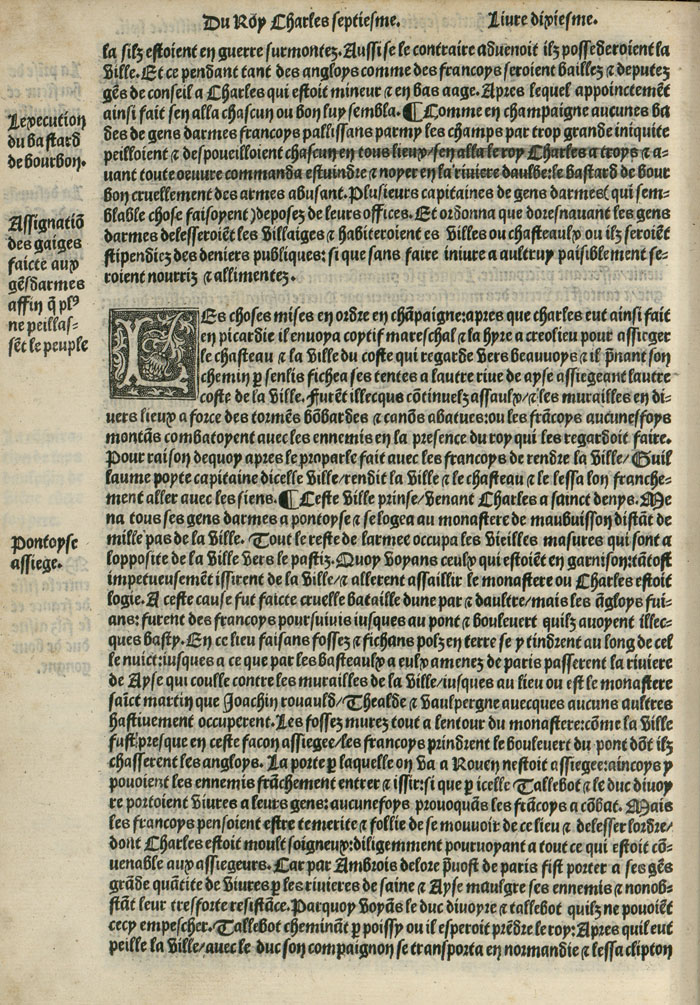 Du Roy Charles septiesme. Livre dixiesme.
la silz estoient en guerre surmontez. Aussi se le contraire advenoit ilz possederoient la
ville. Et ce pendant tant des angloys comme des francoys seroient baillez & deputez
gēs de conseil a Charles qui estoit mineur & en bas aage. Apres lequel appoinctemēt
ainsi fait sen alla chascun ou bon luy sembla. ¶ Comme en champaigne aucunes ba
des de gens darmes francoys pallissans parmy les champs par trop grande iniquite
peilloient & despoueilloient chascun en tous lieux/sen alla le roy Charles a troys & a-
vant toute oeuvre commanda estvindre & noyer en la riviere daulbe: le bastard de bour
bon cruellement des armes abusant. Plusieurs capitaines de gens darmes( qui sem-
blable chose faisoyent )deposez de leurs offices. Et ordonna que doresnavant les gens
darmes delesseroiēt les villaiges & habiteroient es villes ou chasteaulx ou ilz seroiēt
stipendiez des deniers publiques: si que sans faire iniure a aultruy paisiblement se-
roient nourriz & allimentez.
Lexecution
du bastard
de bourbon.
Assignatiō
des gaiges
faicte aux
gēsdarmes
affin q̄ plꝰ
ne peillas-
sēt le peuple
LEs choses mises en ordre en chāpaigne: apres que charles eut ainsi fait
en picardie il envoya coytif mareschal & la hyre a creolieu pour assieger
le chasteau & la ville du coste qui regarde vers beauvoys & il p̄nant son
chemin ꝑ senlis fichea ses tentes a lautre rive de ayse assiegeant lautre
coste de la ville. Furēt illecques cōtinuelz assaulx/& les murailles en di-
vers lieux a force des tormēs bōbardes & canōs abatues: ou les frācoys aucuneffoys
montās combatoyent avec les ennemis en la presence du roy qui les regardoit faire.
Pour raison dequoy apres le proparle fait avec les francoys de rendre la ville/ Guil
laume poyte capitaine dicelle ville/rendit la ville & le chasteau & le lessa lon franche-
ment aller avec les siens. ¶ Ceste ville prinse/venant Charles a sainct denys. Me
na tous ses gens darmes a pontoyse & se logea au monastere de maubuisson distāt de
mille pas de la ville. Tout le reste de larmee occupa les vieilles masures qui sont a
lopposite de la ville vers le pastiz. Quoy voyans ceulx qui estoiēt en garnison: tātost
impetueusemēt issirent de la ville/& allerent assaillir le monastere ou Charles estoit
logie. A ceste cause fut faicte cruelle bataille dune par & daultre/mais les āgloys fui-
ans: furent des francoys poursuivis iusques au pont & boulevert quilz avoyent illec-
ques basty. En ce lieu faisans fossez & fichans polz en terre se y tindrent au long de cel
le nuict: iusques a ce que par les basteaulx a eulx amenez de paris passerent la riviere
de Ayse qui coulle contre les murailles de la ville/iusques au lieu ou est le monastere
saīct martin que Joachin rouauld/Thealde & vaulpergne avecques aucuns aultres
hastivement occuperent. Les fossez murez tout a lentour du monastere: cōme la ville
fust presque en ceste facon assiegee/les francoys prindrent le boulevert du pont dōt ilz
chasserent les angloys. La porte ꝑ laquelle on va a Rouen nestoit assiegee: aincoys y
pouoient les ennemis frāchement entrer & issir: si que ꝑ icelle Tallebot & le duc divoy
re portoient vivres a leurs gens: aucunefoys provoquās les frācoys a cōbat. Mais
les francoys pensoient estre temerite & follie de se mouvoir de ce lieu & delesser lordre/
dont Charles estoit moult soigneux: diligemment pourvoyant a tout ce qui estoit cō-
venable aux assiegeurs. Car par Ambrois delore p̄vost de paris fist porter a ses gēs
grāde quātite de vivres ꝑ les rivieres de saine & Ayse maulgre ses ennemis & nonob-
stāt leur tresforte resistāce. Parquoy voyās le duc divoyre & tallebot quilz ne pouoiēt
cecy empescher. Tallebot chemināt ꝑ poissy ou il esperoit prēdre le roy: Apres quil eut
peille la ville/avec le duc son compaignon se transporta en normandie & lessa clipton
Pontoyse
assiege.